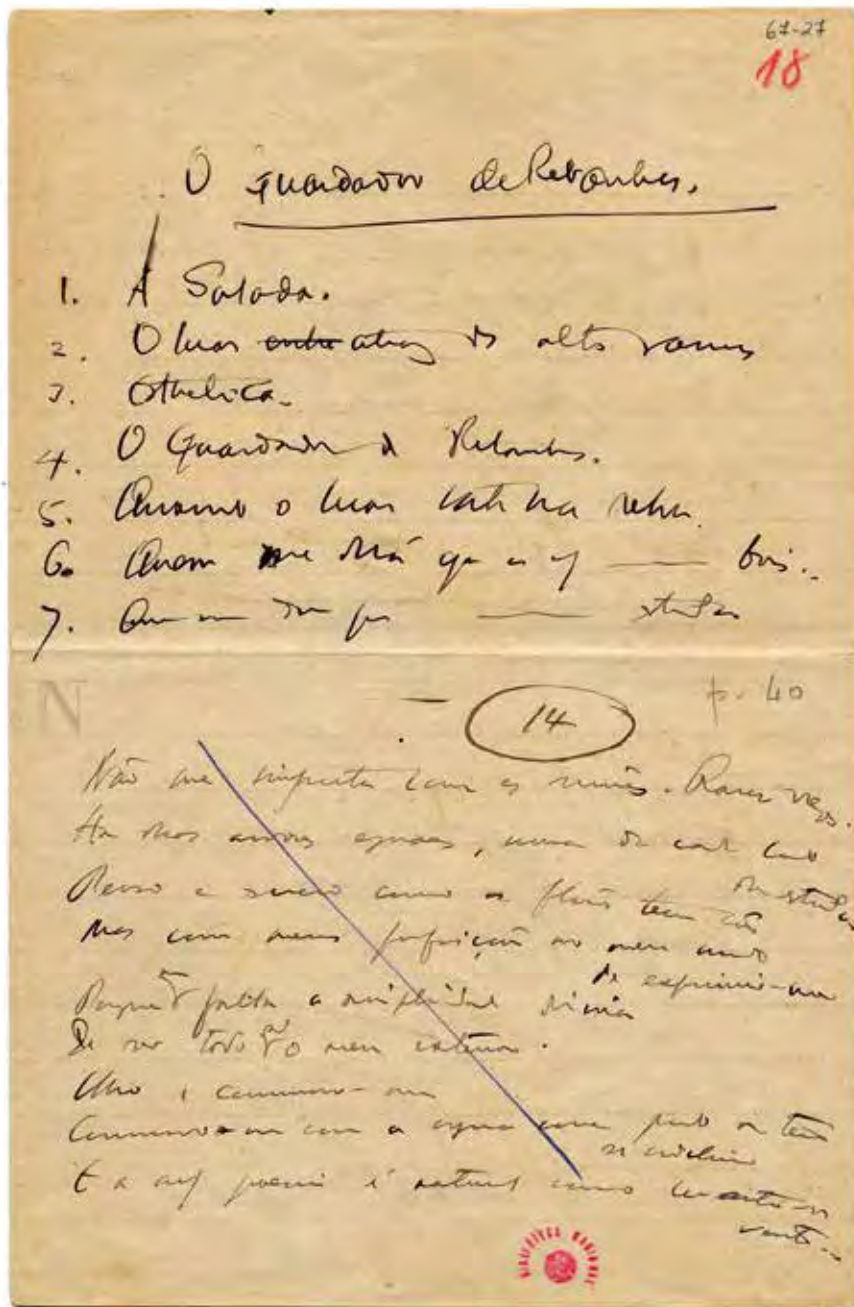 67-27
18
O Guardador de Rebanhos.
1. A Salada.
2. O luar entre atraz dos altos ramos
3. 
4. O Guardador de Rebanhos.
5. Quando o luar bate na relva.
6. Quem me dera que eu f — bois..
7. Quem me dera — estradas
N
p. 40
14
Não me importo com as rimas. Raras vezes.
Ha duas arvores eguaes, uma ao lado
Penso e escrevo como as flores teem côr
da outra
Mas com menos perfeição no meu modo
de exprimir-me
Porque me falta a simplicidade divina
De ser todo só o meu exterior.
Olho e commovo-me
Commovo-me como a agua corre quando o
é inclinado
E a m/ poesia é natural como levantar-se
vento...
BIBLIOTECA NACIONAL